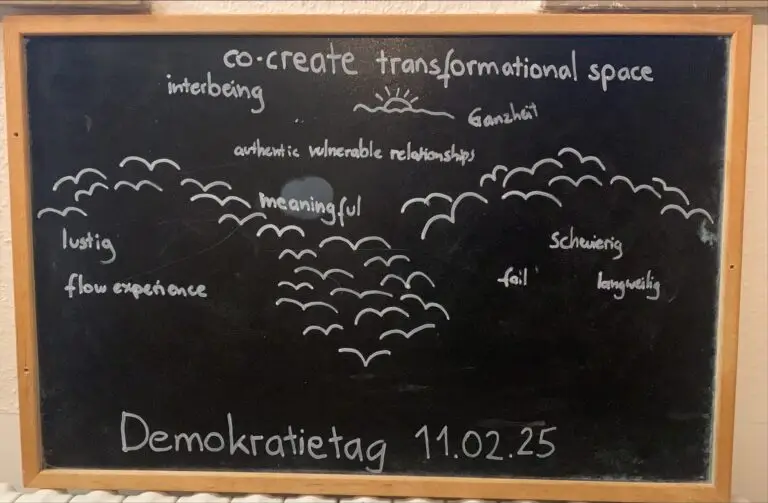 co·create transformational space
interbeing
Ganzheit
authentic vulnerable relationships
meaningful
lustig
schwierig
flow experience
fail
langweilig
Demokratietag 11.02.25